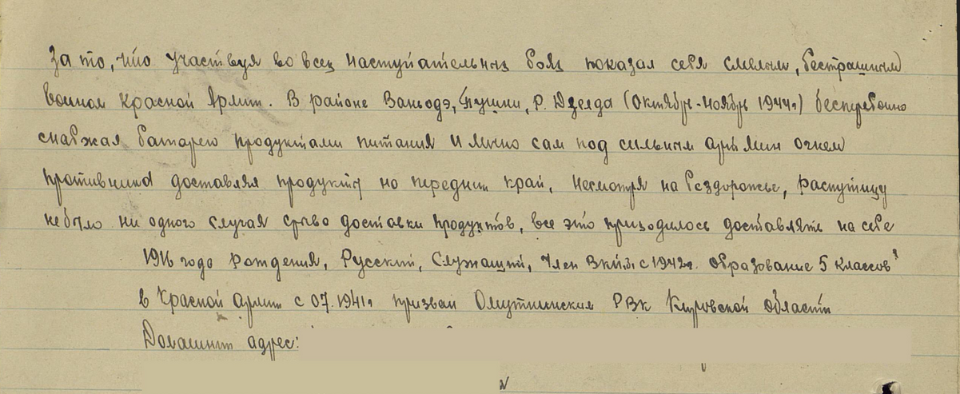 За то, что участвуя во всех наступательных боях показал себя смелым, бестрашным
воином Красной Армии. В районе Вайнодэ, р. Дзелда (Октябрь-Ноябрь 1944г) бесперебойно
снабжал батарею продуктами питания и лично сам под сильным арт мин огнем
противника доставлял продукты на передний край, несмотря на бездорожье, распутицу
небыло ни одного случая срыва доставки продуктов, все это приходилось доставлять на себе
1916 года рождения, Русский, Служащий, Член ВКП(б) с 1942г. образование 5 классов
в Красной Армии с 07.1941г призван Омутнинским РВК Кировской области
Домашний адрес: